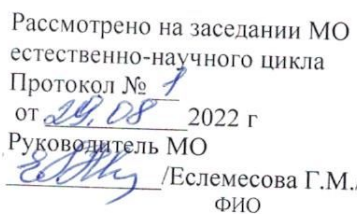 Рассмотрено на заседании МО
естественно-научного цикла
Протокол № 1
от 29.08 2022 г
Руководитель МО
/Еслемесова Г.М./
ФИО